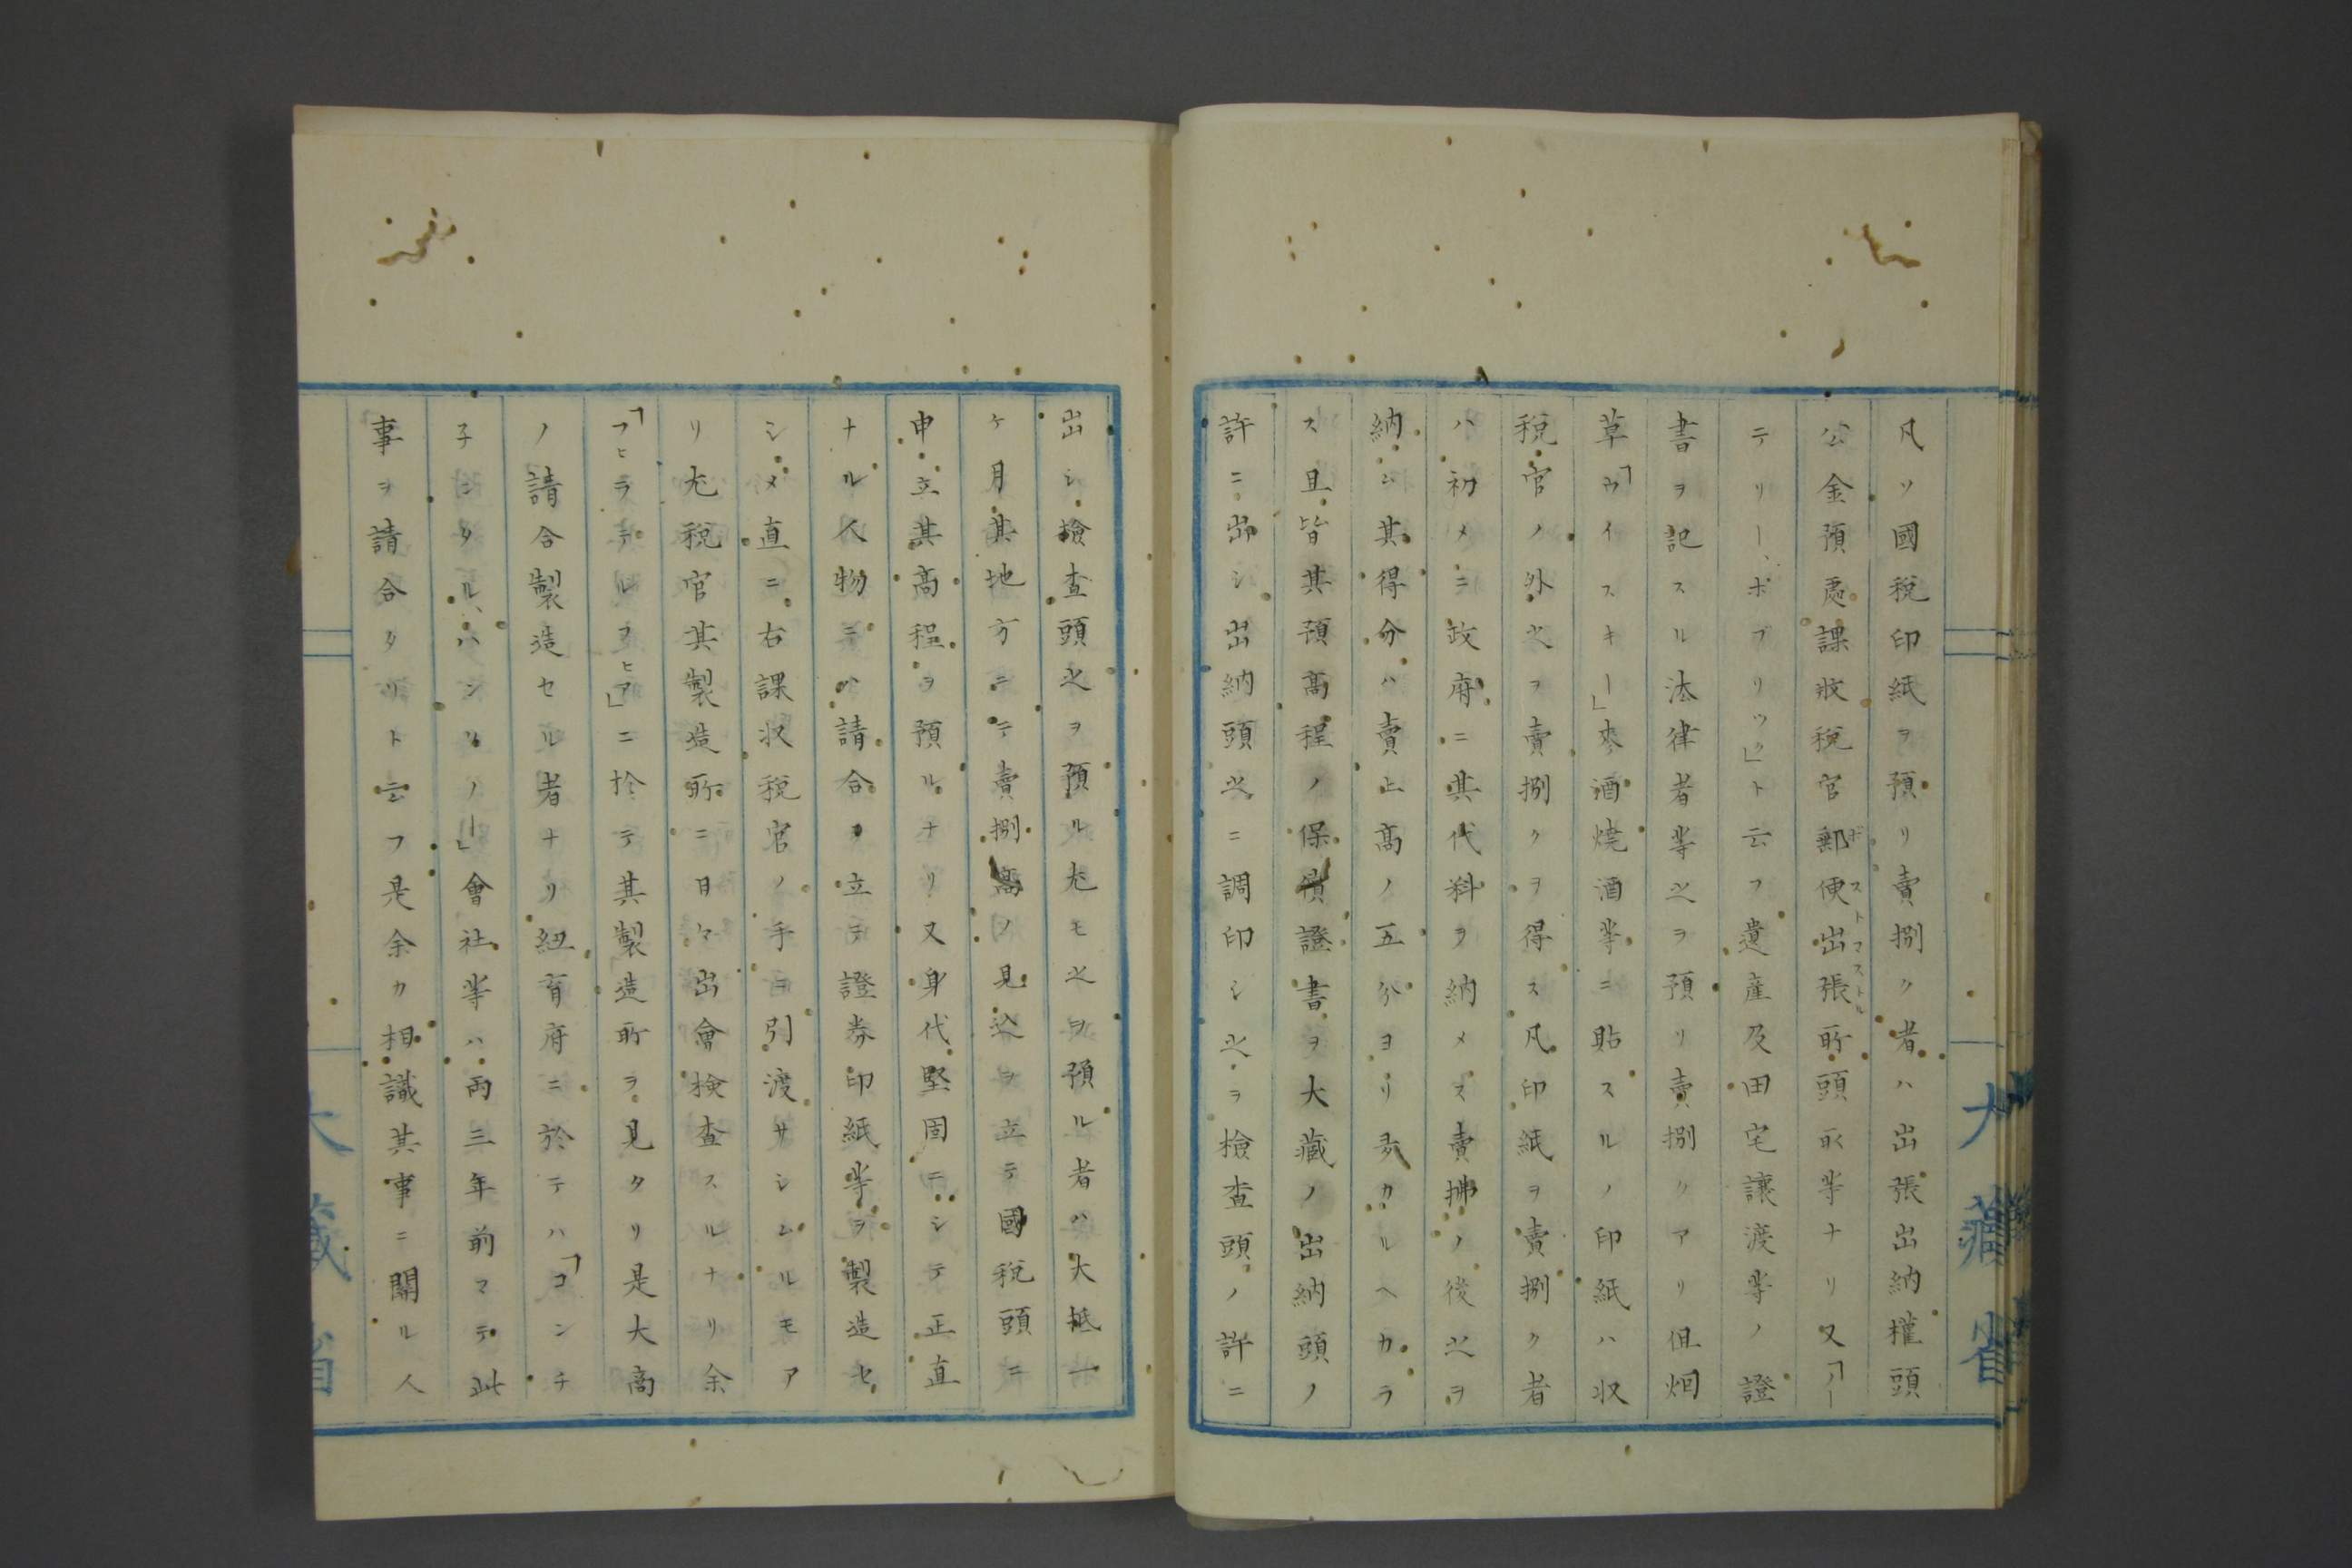 凡ソ國税印紙ヲ預リ賣捌ク者ハ出張出納權頭
公金預處課收税官郵便出張所頭取等ナリ又「ノー
ポストマストル
テリー、ボブリック」ト云フ遺産及田宅讓渡等ノ證
書ヲ記スル法律者等之ヲ預リ賣捌クアリ但烟
草「ウイスキー」麥酒燒酒等ニ貼スルノ印紙ハ収
税官ノ外之ヲ賣捌クヲ得ス凡印紙ヲ賣捌ク者
ハ初メニ政府ニ其代料ヲ納メス賣拂ノ後之ヲ
納ム其得分ハ賣上高ノ五分ヨリ多カルヘカラ
ス且皆其預高程ノ保償證書ヲ大藏ノ出納頭ノ
許ニ出シ出納頭之ニ調印シ之ヲ檢査頭ノ許ニ
大藏省
出シ檢査頭之ヲ預ル尤モ之ヲ預ル者ハ大抵一
ケ月其地方ニテ賣捌高ノ見込ヲ立テ國税頭ニ
申立其高程ヲ預ルナリ又身代堅固ニシテ正直
ナル人物ニハ請合ヲ立テ證券印紙等ヲ製造セ
シメ直ニ右課収税官ノ手ヨ引渡サシムルモア
リ尤税官其製造所ニ日々出會検査スルナリ余
「フヒラデルヲヒア」ニ於テ其製造所ヲ見タリ是大高
ノ請合製造セル者ナリ紐育府ニ於テハ「コンチ
子ンタル、ハンクノー」會社等ハ両三年前マテ此
事ヲ請合タリト云フ是余カ相識其事ニ關ル人
大藏省